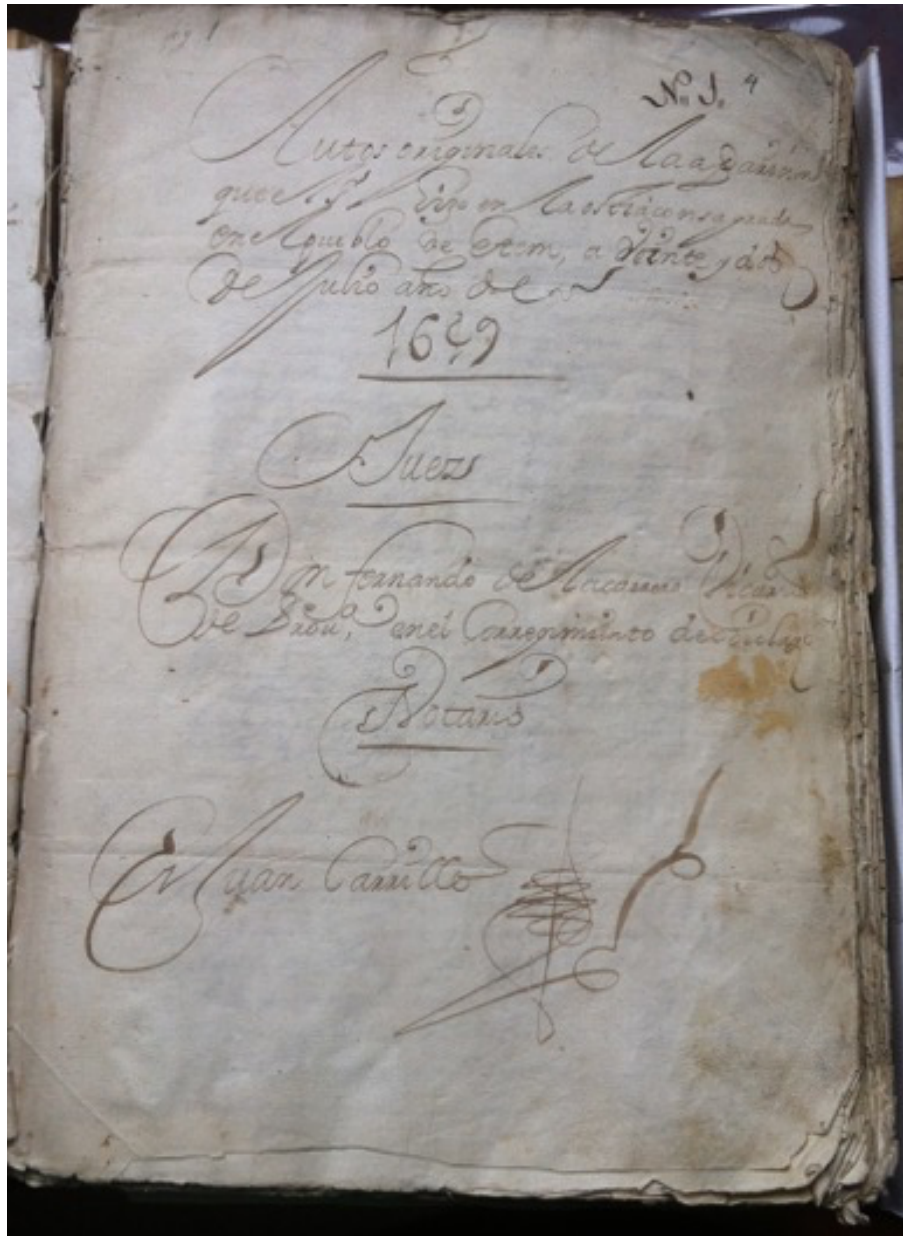 N. 1. 4
Autos originales de la aparicion
que N. S. hizo en la ostia consagrada
en el pueblo de Etem, a Veinte y dos
de Julio año de
1649
Juez
Don fernando de la carrera Vicario
de Prov.ª, en el Corregimiento de
Notario
Er Juan Carrillo